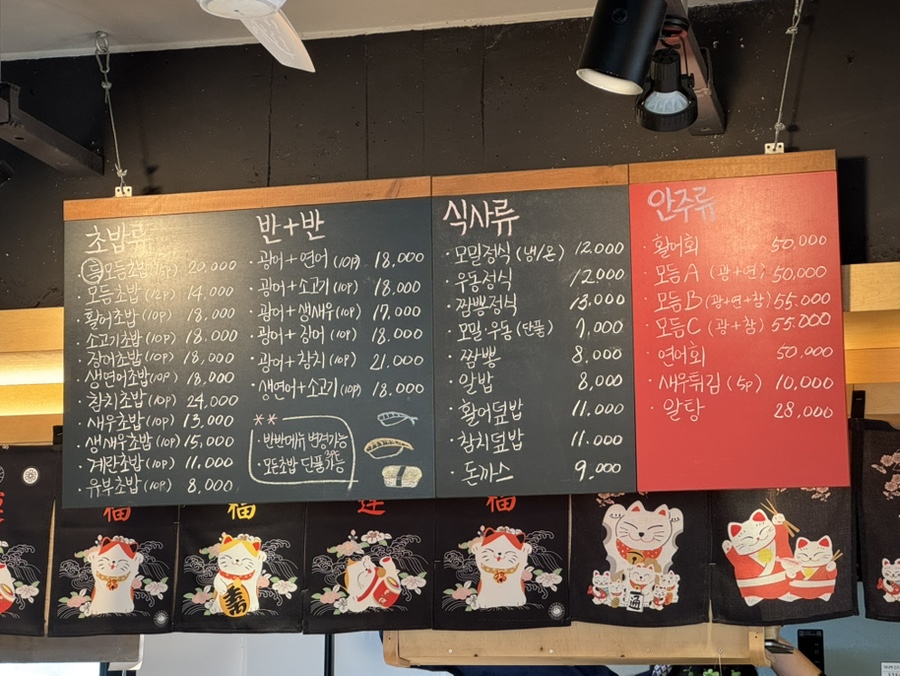 초밥류
특 모듬초밥 (15p) 20,000
· 모듬초밥 (12p) 14,000
· 활어초밥 (10p) 18,000
· 소고기초밥 (10p) 18,000
· 장어초밥 (10p) 18,000
· 생연어초밥 (10p) 18,000
· 참치초밥 (10p) 24,000
· 새우초밥 (10p) 13,000
· 생새우초밥 (10p) 15,000
· 계란초밥 (10p) 11,000
· 유부초밥 (10p) 8,000
반+반
· 광어+연어 (10p) 18,000
· 광어+소고기 (10p) 18,000
· 광어+생새우 (10p) 17,000
· 광어+장어 (10p) 18,000
· 광어+참치 (10p) 21,000
· 생연어+소고기 (10p) 18,000
**
· 반반메뉴 변경가능
· 모든초밥 단품가능
식사류
· 모밀정식 (냉/온) 12,000
· 우동정식 12,000
· 짬뽕정식 13,000
· 모밀·우동 (단품) 7,000
· 짬뽕 8,000
· 알밥 8,000
· 활어덮밥 11,000
· 참치덮밥 11,000
· 돈까스 9,000
안주류
· 활어회 50,000
· 모듬A (광+연) 50,000
· 모듬B (광+연+참) 55,000
· 모듬C (광+참) 55,000
· 연어회 50,000
· 새우튀김 (5p) 10,000
· 알탕 28,000
福
福
福
壽